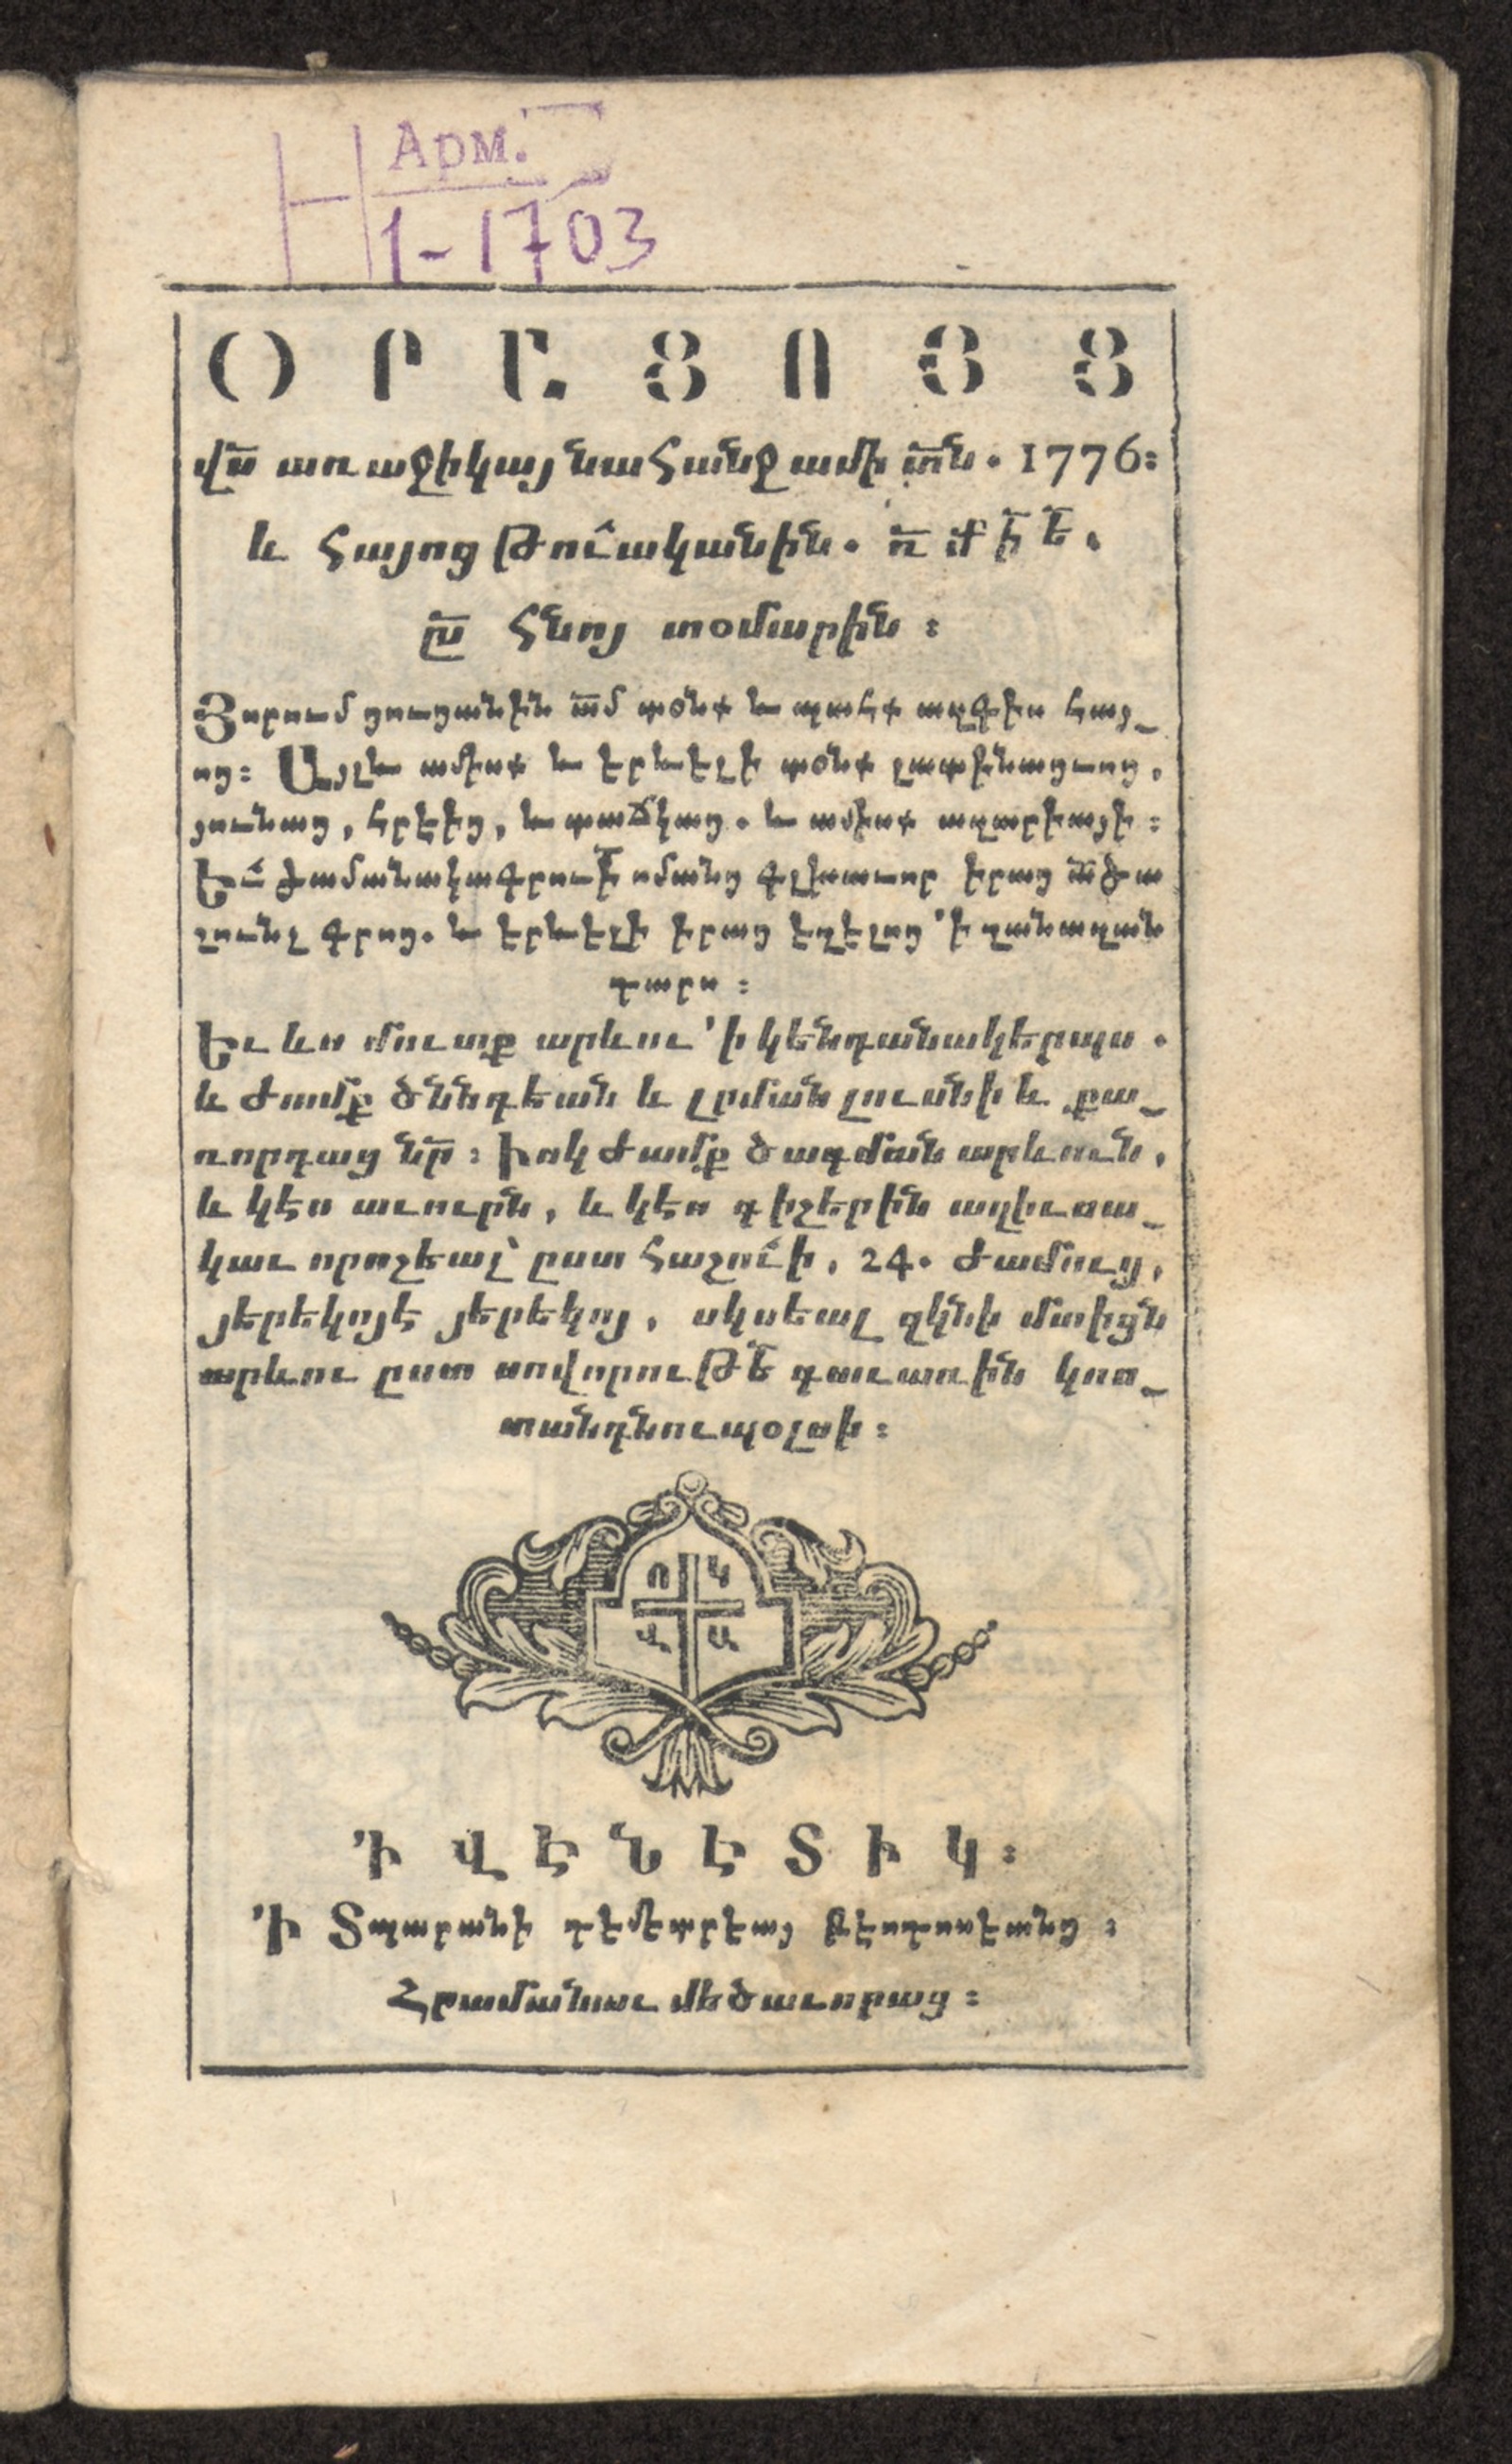 Арм.
1-1703
ՕՐԱՑՈՅՑ
վս̃ առաջիկայ նահանջ ամի տն̃ . 1776 :
և Հայոց Թուականին . ռ̃ մ̃ ի̃ ե̃ .
ըս̃ հնոյ տօմարին :
Յորում ցուցանին ամ̃ տօնք և պահք ազգիս հայ_
ոց : Այլև ամիսք և երևելի տօնք լատինացւոց ,
յունաց , հրէից , և տաճկաց . և ամիսք ազարիայի :
Եւ ժամանակագրուի̃ ոմանց գլխաւոր իրաց
շունչ գրոց . և երևելի իրաց եղելոց ՚ի զանազան
դարս :
Եւ ևս մուտք արևու ՚ի կենդանակերպս .
և ժամք ծննդեան և լրման լուսնի և քա_
ռորդաց նր̃ : Իսկ ժամք ծագման արևուն ,
և կէս աւուրն , և կէս գիշերին աղիւսա_
կաւ որոշեալ՝ ըստ հաշուի , 24 . ժամուց ,
յերեկոյէ յերեկոյ , սկսեալ զկնի մտիցն
արևու ըստ սովորուԹե̃ գաւառին կոս_
տանդնուպօլսի :
Ո Կ
Վ Ա
՚Ի ՎԷՆԷՏԻԿ :
՚Ի Տպարանի դէմէտրէայ Թէոդոսէանց :
Հրամանաւ մեծաւորաց :